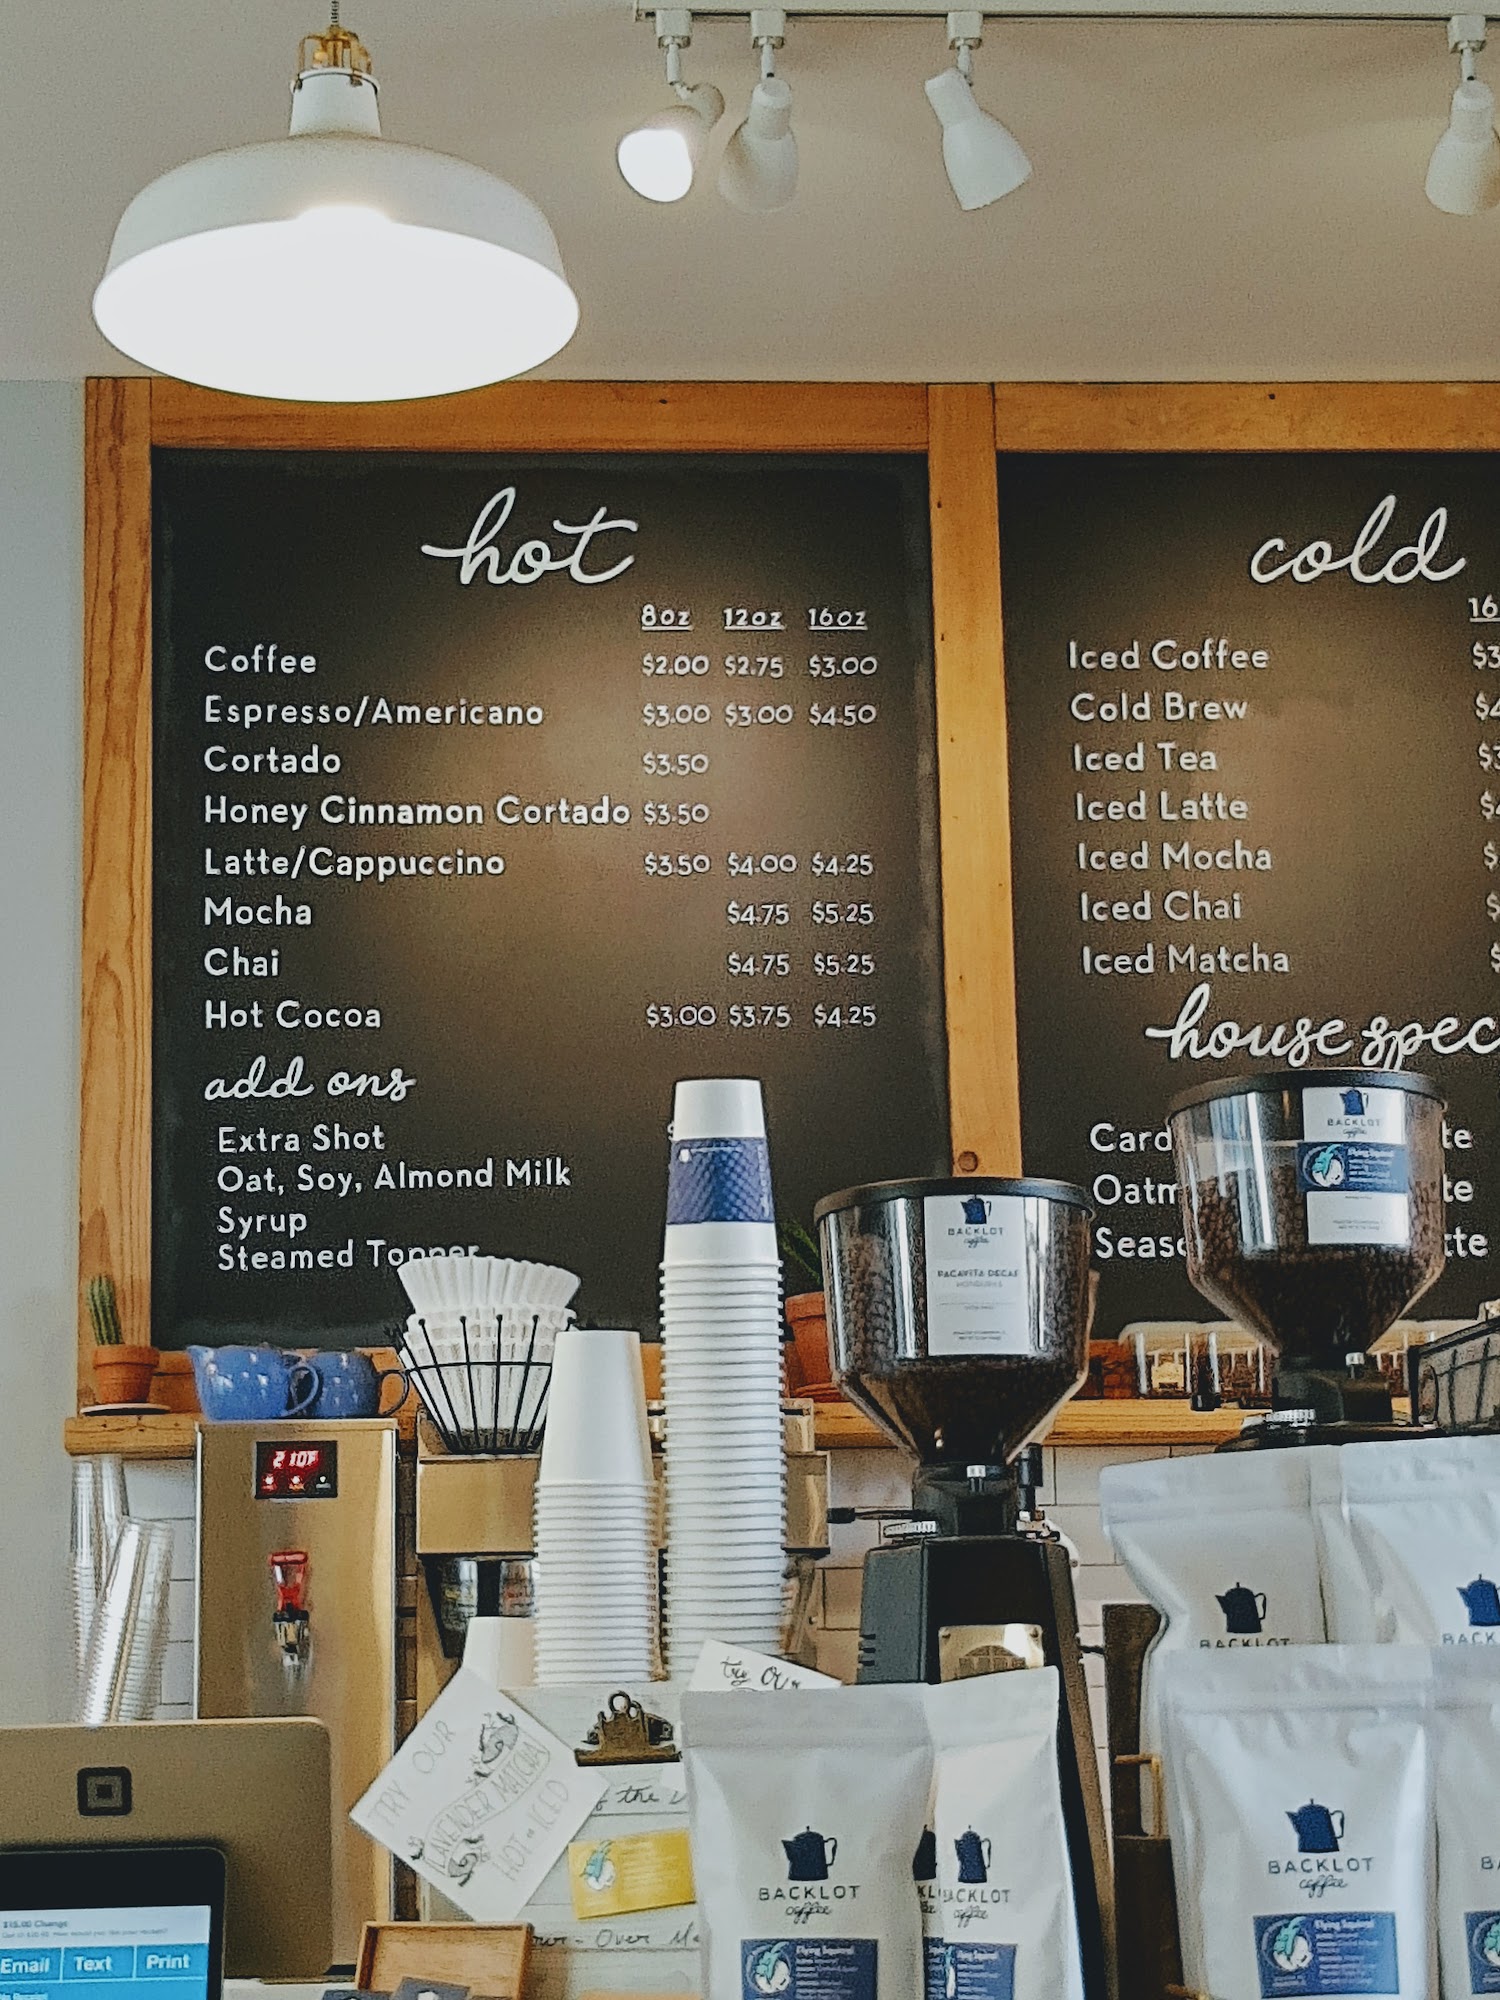 hot
8oz 12oz 16oz
Coffee $2.00 $2.75 $3.00
Espresso/Americano $3.00 $3.00 $4.50
Cortado $3.50
Honey Cinnamon Cortado $3.50
Latte/Cappuccino $3.50 $4.00 $4.25
Mocha $4.75 $5.25
Chai $4.75 $5.25
Hot Cocoa $3.00 $3.75 $4.25
add ons
Extra Shot
Oat, Soy, Almond Milk
Syrup
Steamed Topper
cold
16
Iced Coffee $3
Cold Brew $4
Iced Tea $3
Iced Latte $4
Iced Mocha $
Iced Chai $
Iced Matcha $
house spec
Card te
Oatm te
Seas tte
BACKLOT
coffee
Flying Squirrel
BACKLOT
coffee
PACAVITA DECAF
HONDURAS
210F
BACKLOT
BACK
TRY OUR
LAVENDER MATCHA
HOT or ICED
Try Our
of the
our-Over
BACKLOT
coffee
Flying Squirrel
BACKLOT
coffee
Flying Squirrel
BACKLOT
coffee
Flying Squirrel
$15.00 Change
Email Text Print
No Receipt